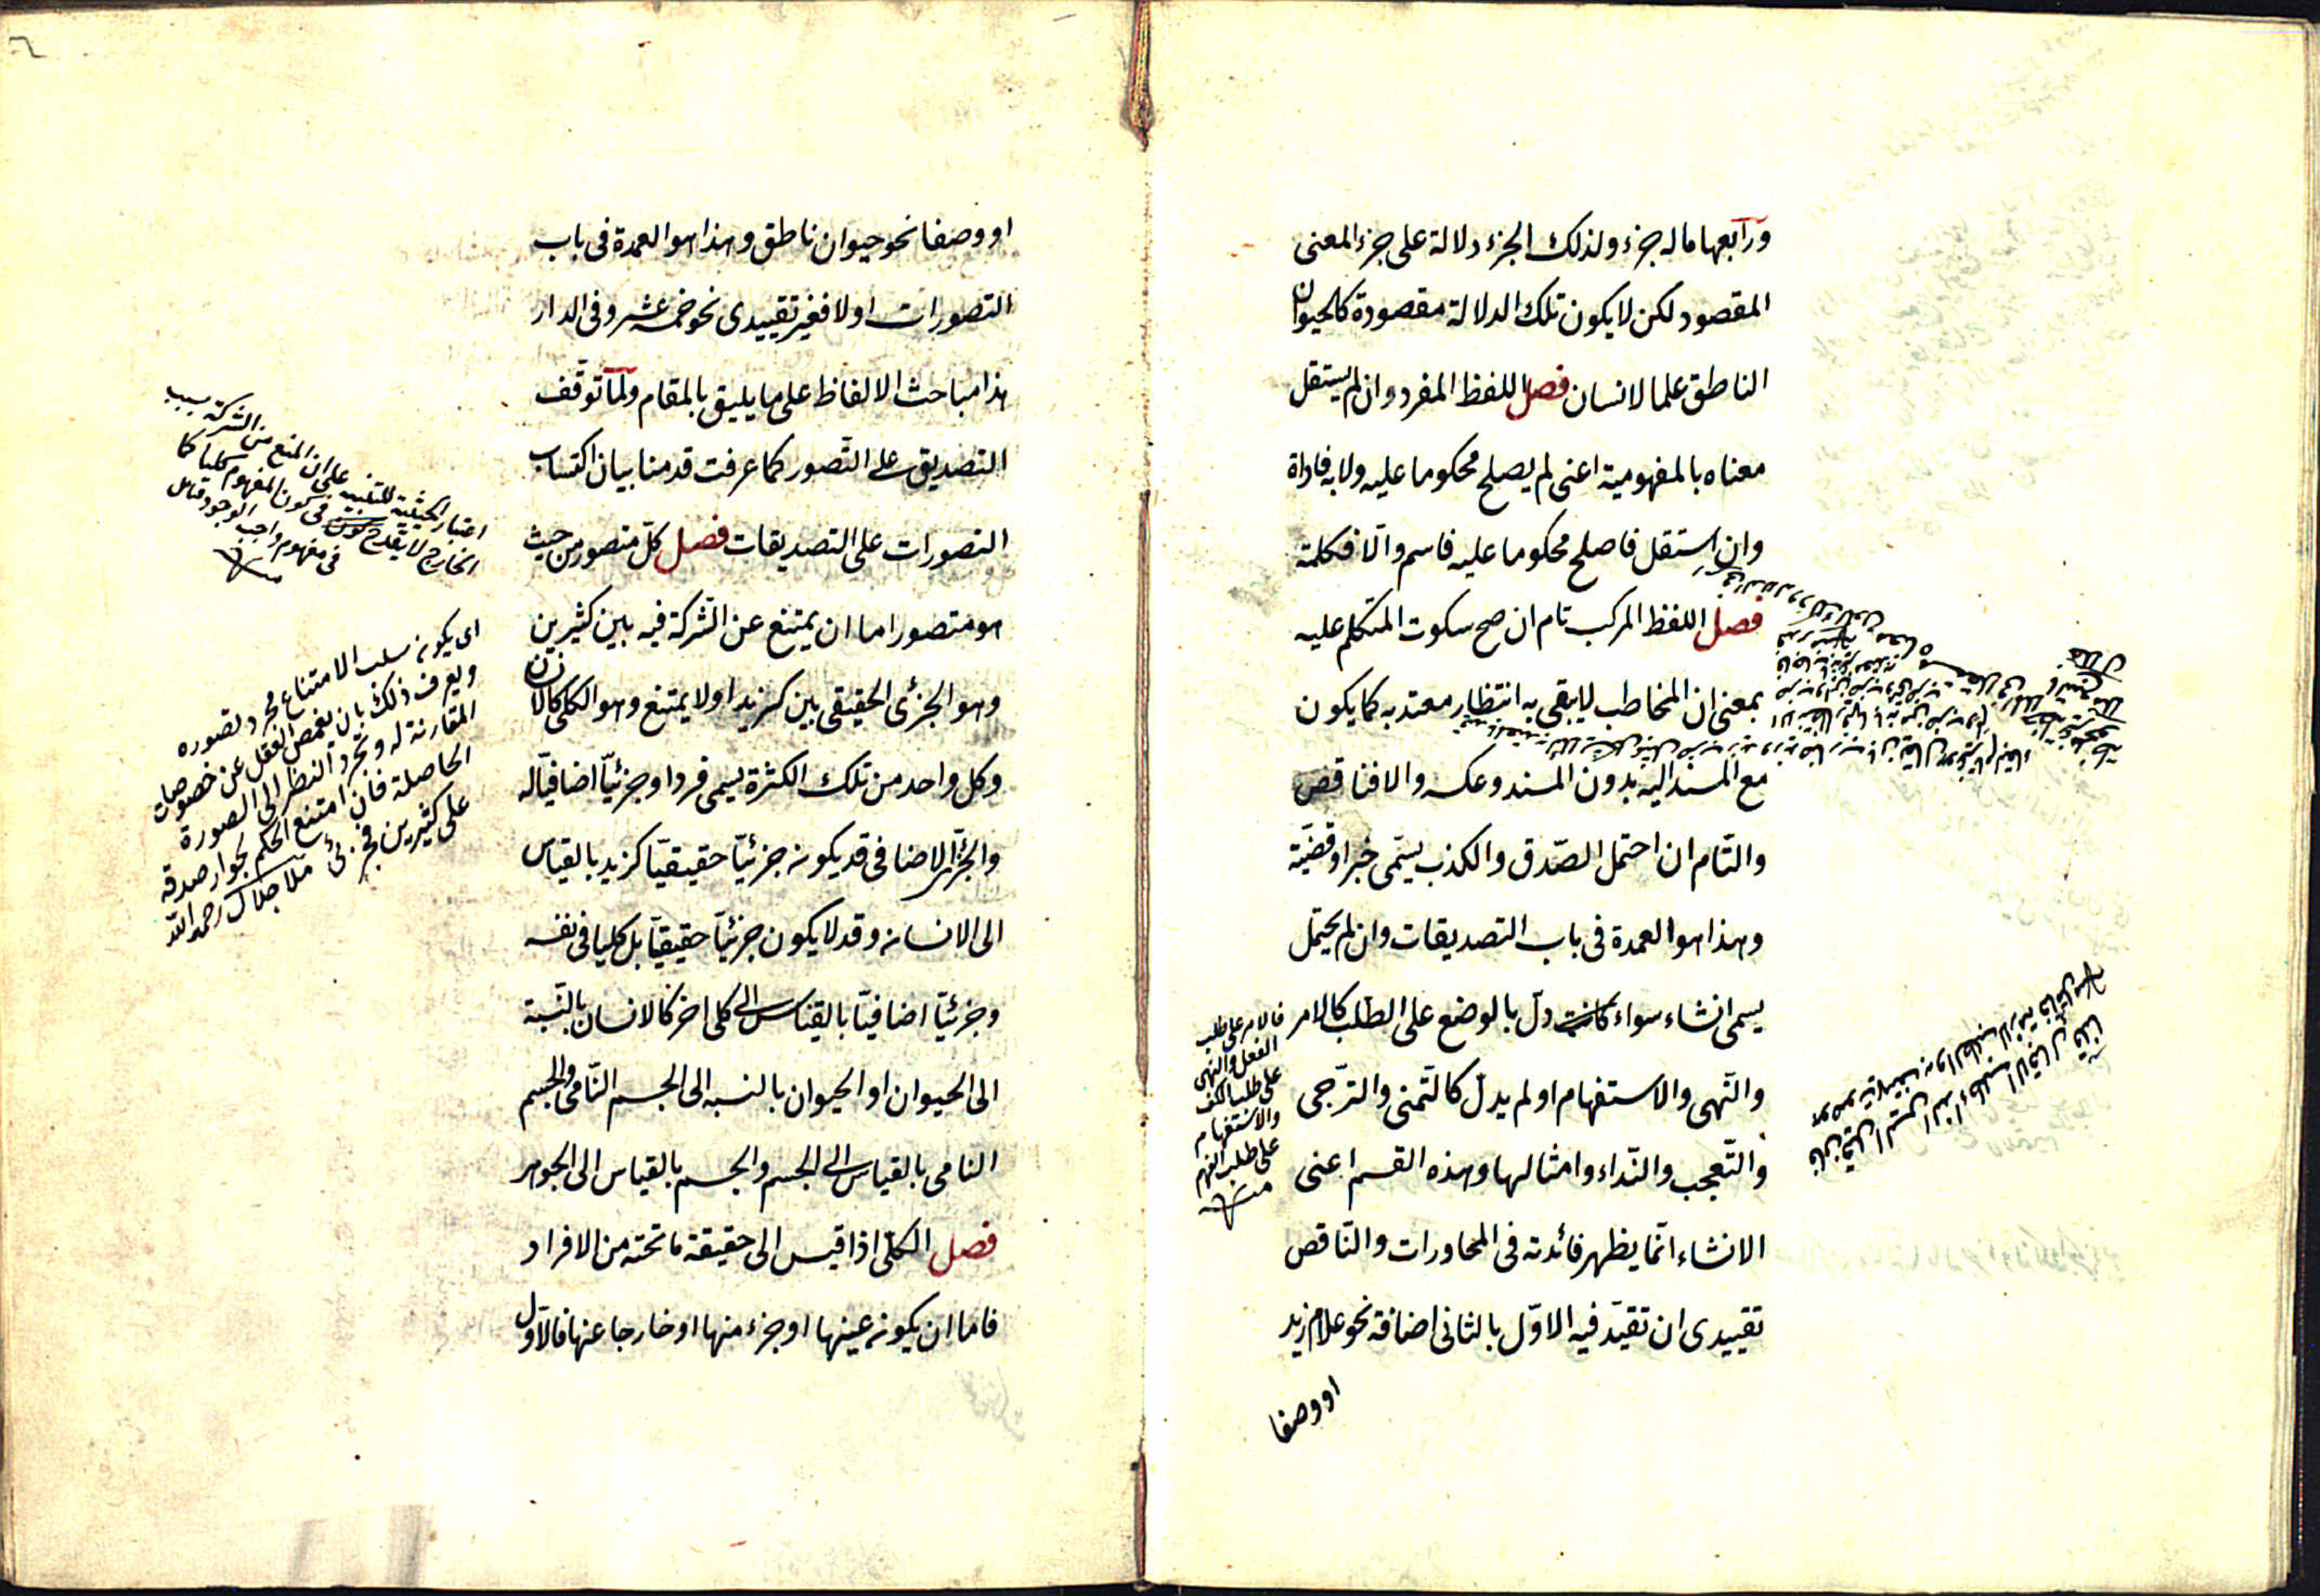 ورابعها ماله جزء ولذلك الجزء دلالة على جزء المعنى
المقصود لكن لا يكون تلك الدلالة مقصودة كالحيوان
الناطق علما لانسان فصل اللفظ المفرد وان لم يستقل
معناه بالمفهومية اعنى لم يصلح محكوما عليه ولا به فاداة
وان استقل فاصلح محكوما عليه فاسم والّا فكلمة
فصل اللفظ المركب تام ان صح سكوت المتكلم عليه
بمعنى ان المخاطب لا يبقى به انتظار معتد به كما يكون
مع المسند اليه بدون المسند وعكسه والا فناقص
والتّام ان احتمل الصّدق والكذب يسمّى خبرا وقضيّة
وهذا هو العمدة فى باب التصديقات وان لم يحتمل
يسمى انشاء سواء كانت دلّ بالوضع على الطلب كالامر
والنّهى والاستفهام او لم يدلّ كالتّمنى والترّجى
والتّعجب والنّداء وامثالها وهذه القسم اعنى
الانشاء انّما يظهر فائدته فى المحاورات والنّاقص
تقييدى ان تقيّد فيه الاوّل بالثانى اضافة نحو غلام زيد
او وصفا
فالامر على طلب
الفعل والنهى
على طلب الكف
والاستفهام
على طلب الفهم
منه
او وصفا نحو حيوان ناطق وهذا هو العمدة فى باب
التصورات اولا فغير تقييدى نحو خمسة عشر وفى الدار
هذا مباحث الالفاظ على ما يليق بالمقام ولمّا توقّف
التصديق على التّصور كما عرفت قدمنا بيان اكتساب
التصورات على التصديقات فصل كلّ متصور من حيث
هو متصور اما ان يمتنع عن الشّركة فيه بين كثيرين
وهو الجزئى الحقيقى بين كزيد او لا يمتنع وهو الكلى كالانسان
وكل واحد من تلك الكثرة يسمى فردا وجزئيّا اضافيّا له
والجزئى الاضافى قد يكون جزئيّا حقيقيّا كزيد بالقياس
الى الانسان وقد لا يكون جزئيّا حقيقيّا بل كليا فى نفسه
وجزئيّا اضافيّا بالقياس الى كلى اخر كالانسان بالنّسبة
الى الحيوان او الحيوان بالنسبه الى الجسم النّامى والجسم
النامى بالقياس الى الجسم والجسم بالقياس الى الجوهر
فصل الكلّى اذا قيس الى حقيقة ما تحته من الافراد
فاما ان يكون عينها او جزء منها او خارجا عنها فالاوّل
اعتبار الحيثية للتنبيه على ان المنع من الشركة بسبب
الخارج لا يقدح فى كون المفهوم كليا كما
فى مفهوم واجب الوجود فتامل
منه
اى يكون سلب الامتناع مجرد تصوره
ويعرف ذلك بان يغمض العقل عن خصوصيات
المقارنة له ويجرد النظر الى الصورة
الحاصلة فان امتنع الحكم بجواز صدقه
على كثيرين فجزئى ملا جلال رحمه الله